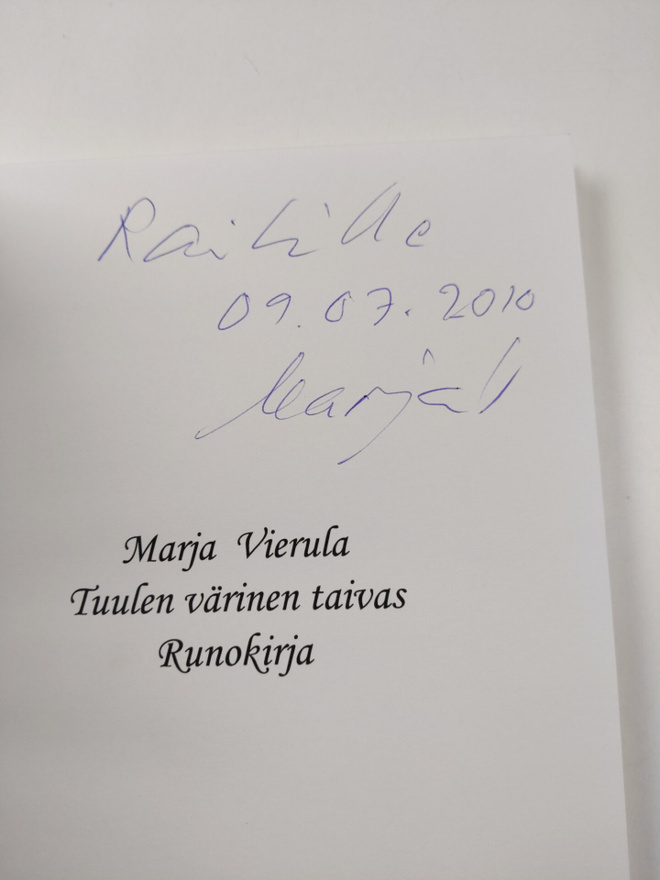 Raitille
09.07.2010
Marja
Marja Vierula
Tuulen värinen taivas
Runokirja